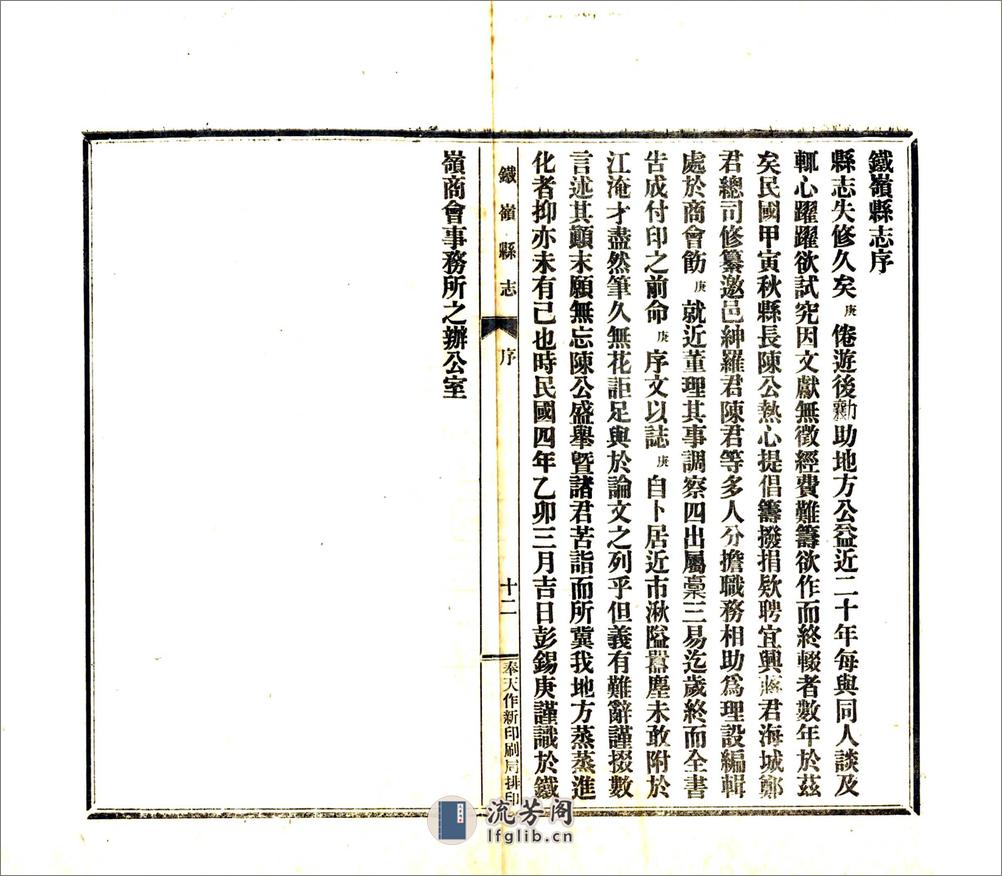 鐵嶺縣志序
縣志失修久矣庚倦遊後勷助地方公益近二十年每與同人談及
輒心躍躍欲試究因文獻無徵經費難籌欲作而終輟者數年於茲
矣民國甲寅秋縣長陳公熱心提倡籌撥捐欵聘宜興蔣君海城鄭
君總司修纂邀邑紳羅君陳君等多人分擔職務相助爲理設編輯
處於商會飭庚就近董理其事調察四出屬稾三易迄歲終而全書
告成付印之前命庚序文以誌庚自卜居近市湫隘囂塵未敢附於
江淹才盡然筆久無花詎足與於論文之列乎但義有難辭謹掇數
言述其顚末願無忘陳公盛舉曁諸君苦詣而所冀我地方蒸蒸進
化者抑亦未有已也時民國四年乙卯三月吉日彭錫庚謹識於鐵
嶺商會事務所之辦公室
鐵嶺縣志
序
十二
奉天作新印刷局排印
流芳阁
lfglib.cn